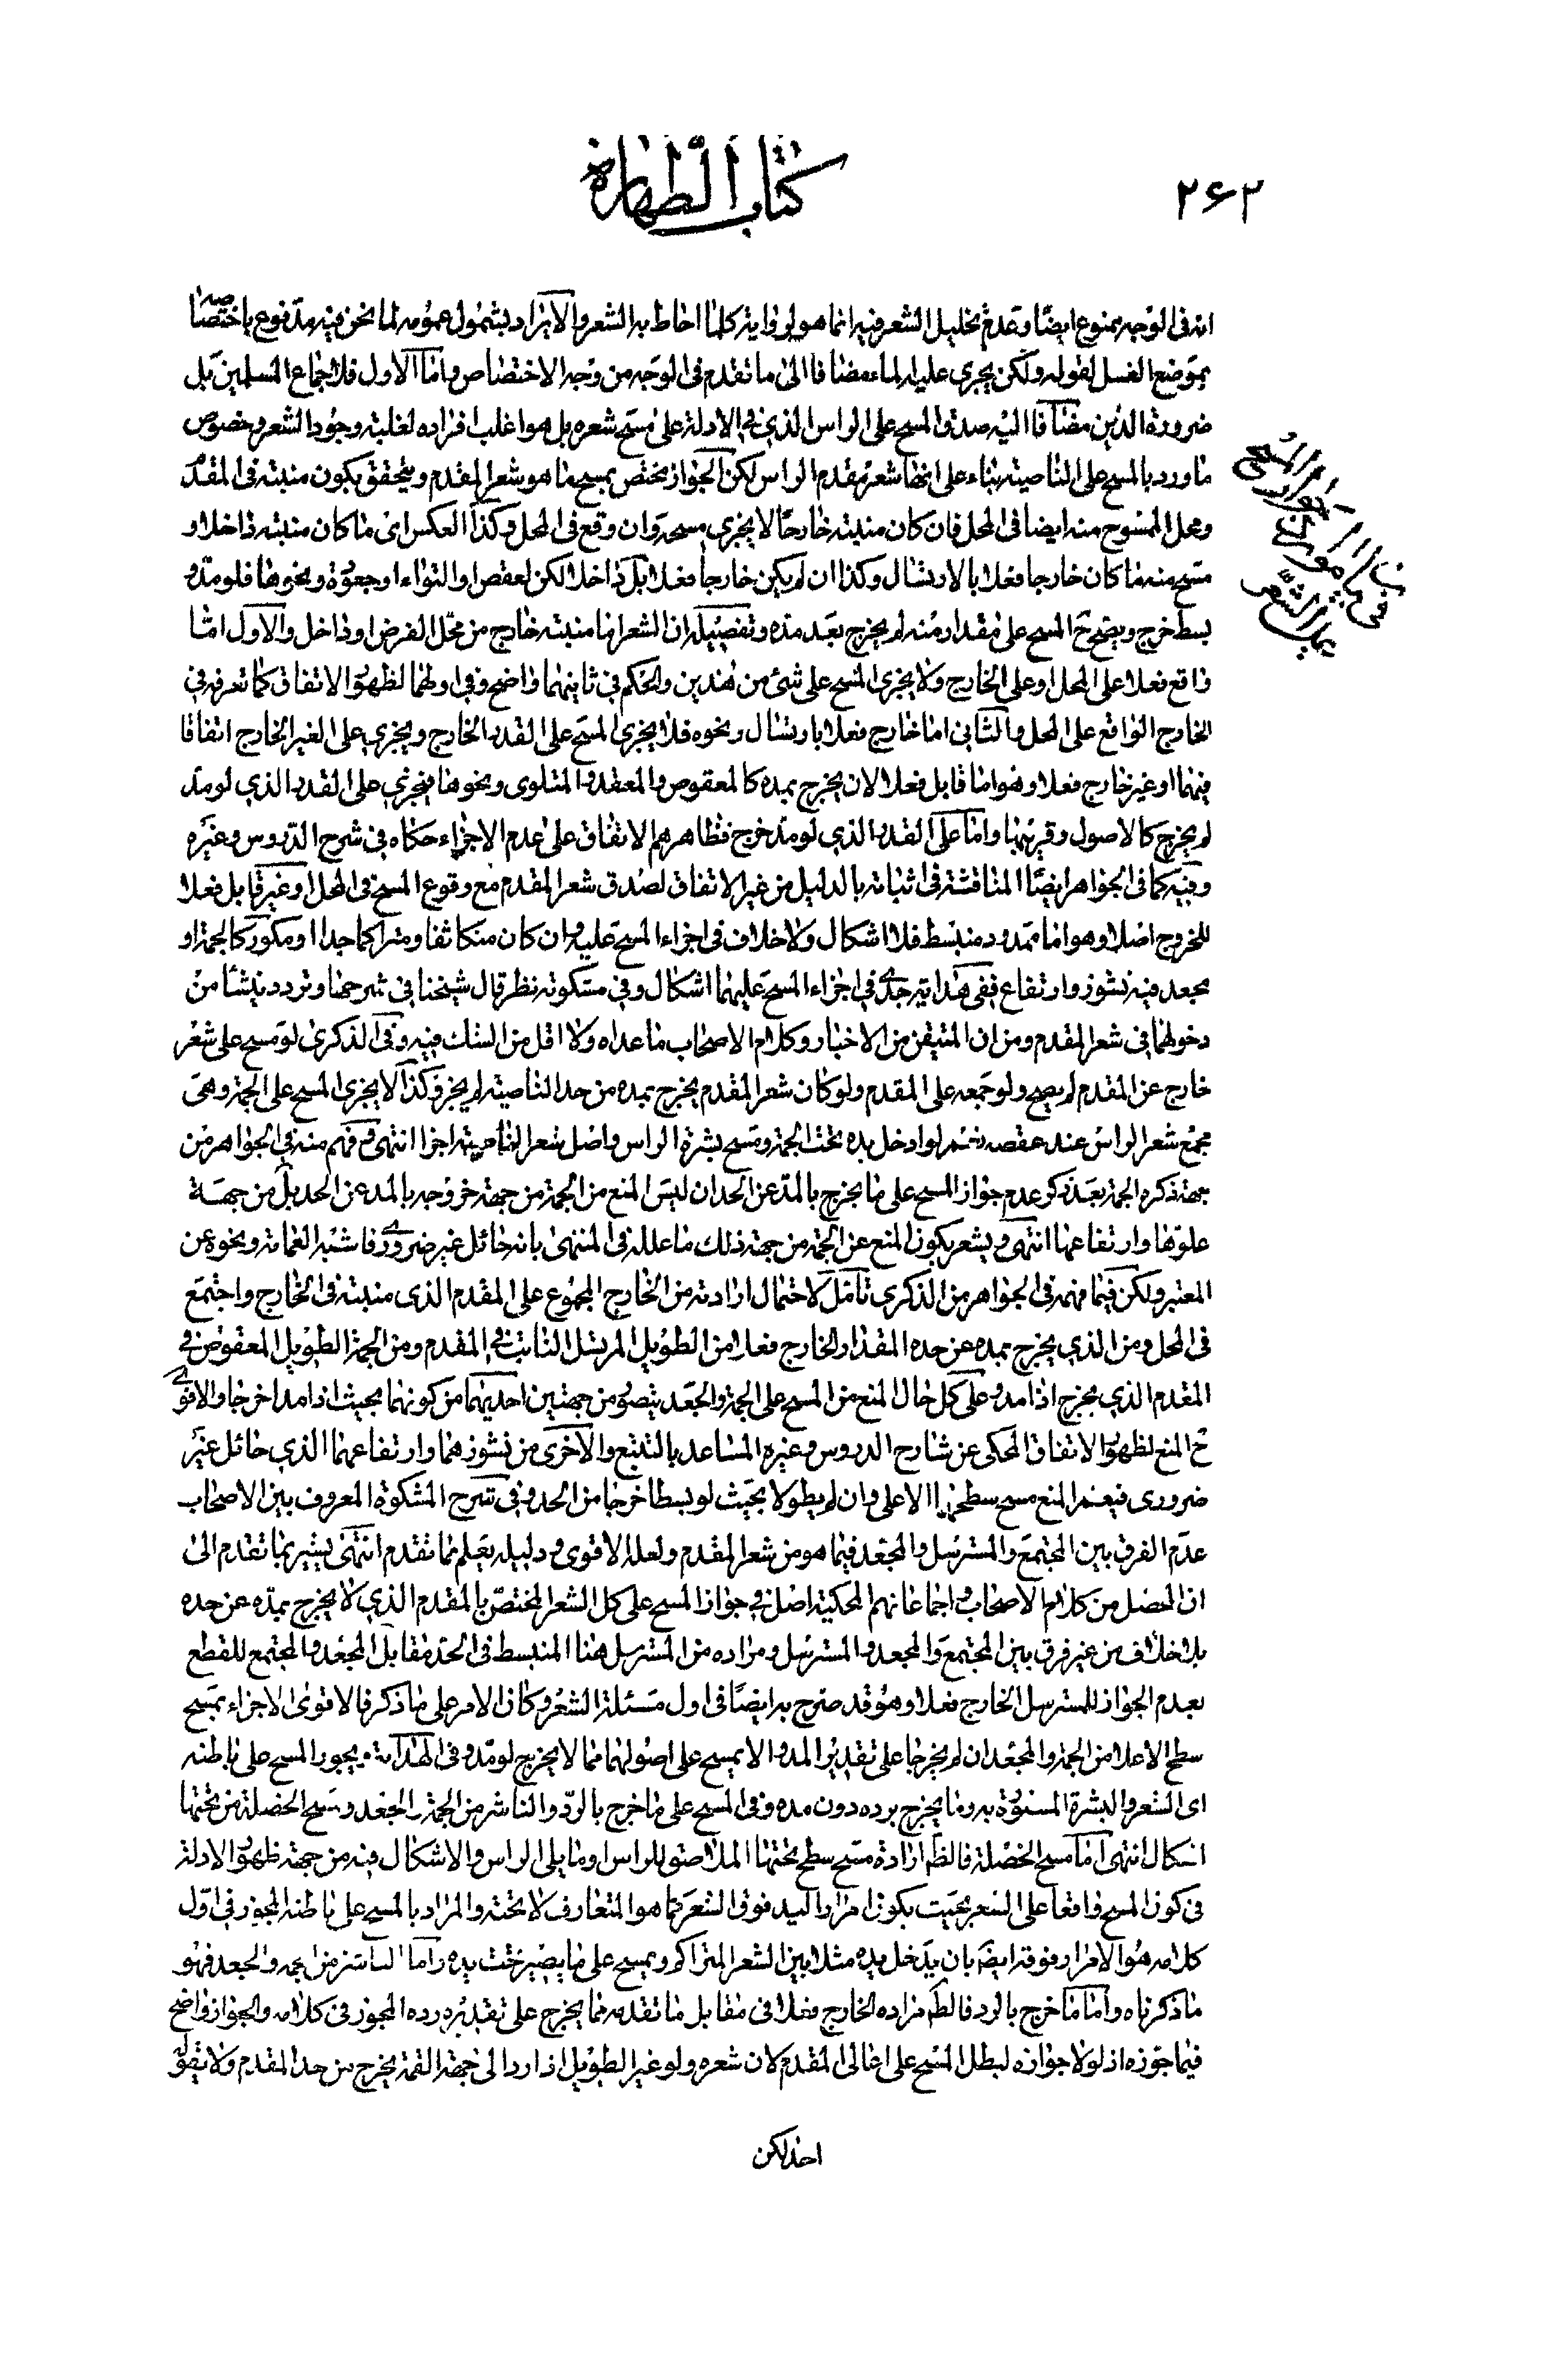 ۲۶۲
كتاب الطهارة
انه فى الوجه ممنوع ايضا وعدم تخليل الشعر فيه انما هو لرواية كلما احاط به الشعر والايراد بشمول عمومه لما نحن فيه مدفوع باختصاصه
بموضع الغسل لقوله ولكن يجرى عليه الماء مضافا الى ما تقدم فى الوجه من وجه الاختصاص واما الاول فلاجماع المسلمين بل
ضرورة الدين مضافا اليه صدق المسح على الراس الذي في الادلة على مسح شعره بل هو اغلب افراده لغلبة وجود الشعر وخصوص
ما ورد بالمسح على الناصية بناء على انها شعر مقدم الراس لكن الجواز مختص بمسح ما هو شعر المقدم ويتحقق بكون منبته فى المقدم
ومحل الممسوح منه ايضا فى المحل فان كان منبته خارجا لا يجزي مسحه وان وقع فى المحل وكذا العكس اى ما كان منبته داخلا و
مسح منه ما كان خارجا فعلا بالارسال وكذا ان لم يكن خارجا فعلا بل داخلا لكن لعقص او التواء او جعودة ونحوها فلو مد و
بسط خرج ويصح ح المسح على مقدار منه لم يخرج بعد مده وتفصيله ان الشعر اما منبته خارج من محل الفرض او داخل والاول اما
واقع فعلا على المحل او على الخارج ولا يجزى المسح على شئ من هذين والحكم في ثانيهما واضح وفي اولهما لظهور الاتفاق كما تعرفه في
الخارج الواقع على المحل والثانى اما خارج فعلا بارسال ونحوه فلا يجزى المسح على القدر الخارج ويجزي على الغير الخارج اتفاقا
فيهما او غير خارج فعلا وهو اما قابل فعلا لان يخرج بمده كالمعقوص والمعقد والمتلوى ونحوها فيجزي على القدر الذي لو مد
لم يخرج كالاصول وقريبها واما على القدر الذي لو مد خرج فظاهرهم الاتفاق على عدم الاجزاء حكاه فى شرح الدروس وغيره
وفيه كما فى الجواهر ايضا المناقشة فى اثباته بالدليل من غير الاتفاق لصدق شعر المقدم مع وقوع المسح فى المحل او غير قابل فعلا
للخروج اصلا وهو اما ممدود منبسط فلا اشكال ولا خلاف فى اجزاء المسح عليه وان كان متكاثفا ومتراكما جدا او مكور كالجمة او
مجعد فيه نشوز وارتفاع ففى هداية جدي في اجزاء المسح عليهما اشكال وفي مشكوته نظر قال شيخنا فى شرحها وتردد ينشأ من
دخولهما فى شعر المقدم ومن ان المتيقن من الاخبار وكلام الاصحاب ما عداه ولا اقل من الشك فيه وفى الذكرى لو مسح على شعر
خارج عن المقدم لم يصح ولو جمعه على المقدم ولو كان شعر المقدم يخرج بمده من حد الناصية لم يجز وكذا لا يجزى المسح على الجمة وهى
مجمع شعر الراس عند عقصه نعم لو ادخل يده تحت الجمة ومسح بشرة الراس واصل شعر الناصية اجزا انتهى وفهم منه فى الجواهر من
جهة ذكره الجمة بعد ذكر عدم جواز المسح على ما يخرج بالمد عن الحد ان ليس المنع من الجمة من جهة خروجه بالمد عن الحد بل من جهة
علوها وارتفاعها انتهى ويشعر بكون المنع عن الجمة من جهة ذلك ما علله فى المنتهى بانه حائل غير ضرورى فاشبه العمامة ونحوه عن
المعتبر ولكن فيما فهمه فى الجواهر من الذكرى تأمل لاحتمال ارادته من الخارج المجموع على المقدم الذى منبته فى الخارج واجتمع
فى المحل ومن الذي يخرج بمده عن حده المقدار الخارج فعلا من الطويل المرسل النابت في المقدم ومن الجمة الطويل المعقوص في
المقدم الذي يخرج اذا مد وعلى كل حال المنع من المسح على الجمة والجعد يتصور من جهتين احديهما من كونهما بحيث اذا مدا خرجا والاقوى
ح المنع لظهور الاتفاق المحكى عن شارح الدروس وغيره المساعد بالتتبع والاخرى من نشوزهما وارتفاعهما الذي حائل غير
ضرورى فيعم المنع مسح سطحهما الاعلى وان لم يطولا بحيث لو بسطا خرجا من الحد وفى شرح المشكوة المعروف بين الاصحاب
عدم الفرق بين المجتمع والمسترسل والمجعد فيما هو من شعر المقدم ولعله الاقوى ودليله يعلم مما تقدم انتهى يشير بما تقدم الى
ان المحصل من كلام الاصحاب واجماعاتهم المحكية اصل في جواز المسح على كل الشعر المختص بالمقدم الذي لا يخرج بمده عن حده
بلا خلاف من غير فرق بين المجتمع والمجعد والمسترسل ومراده من المسترسل هنا المنبسط فى الحد مقابل المجعد والمجتمع للقطع
بعدم الجواز للمسترسل الخارج فعلا وهو قد صرح به ايضا فى اول مسئلة الشعر وكان الامر على ما ذكر فالاقوى الاجزاء بمسح
سطح الاعلا من الجمة والمجعد ان لم يخرجا على تقدير المد والا يمسح على اصولهما مما لا يخرج لو مد وفى الهداية ويجوز المسح على باطنه
اى الشعر والبشرة المستورة به وما يخرج برده دون مده وفى المسح على ما خرج بالرد والناشز من الجمة والجعد ومسح الخصلة من تحتها
اشكال انتهى اما مسح الخصلة فالظ ارادة مسح سطح تحتها الملاصق للراس او ما يلى الراس والاشكال فيه من جهة ظهور الادلة
فى كون المسح واقعا على الشعر بحيث يكون امرار اليد فوق الشعر كما هو المتعارف لا تحته والمراد بالمسح على باطنه المجوز فى اول
كلامه هو الامرار وفوقه ايضا بان يدخل يده مثلا بين الشعر المتراكم ويمسح على ما يصير تحت يده واما الناشز من الجمة والجعد فهو
ما ذكرناه واما ما خرج بالرد فالظ مراده الخارج فعلا فى مقابل ما تقدمه مما يخرج على تقدير رده المجوز فى كلامه والجواز واضح
فيما جوزه اذ لولا جوازه لبطل المسح على اعالى المقدم لان شعره ولو غير الطويل اذا رد الى جهة القمة يخرج من حد المقدم ولا يقول
احد لكن